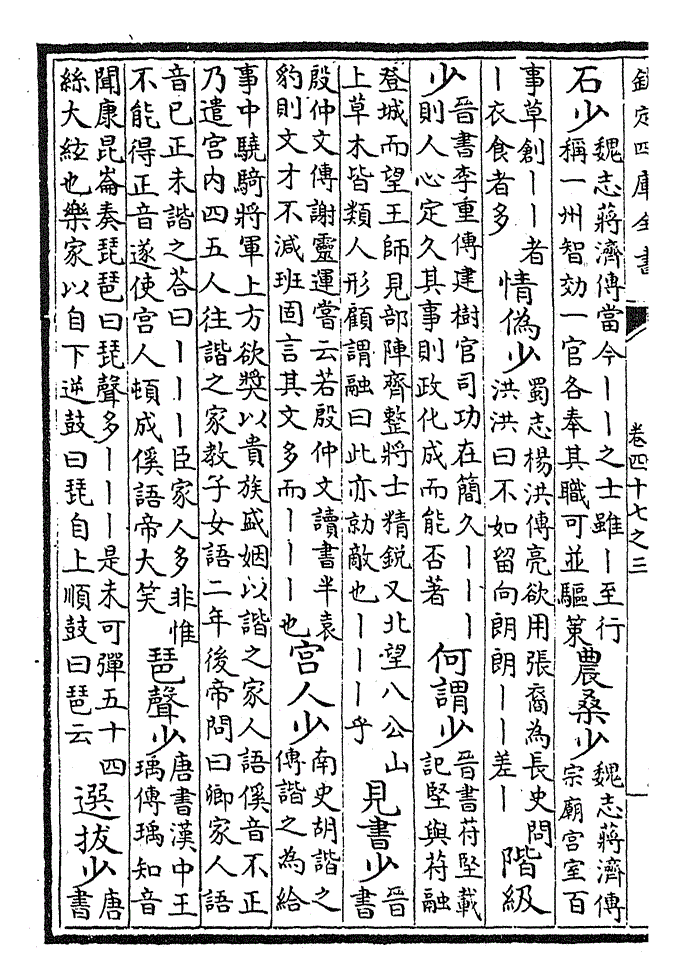 欽定四庫全書 卷四十七之三
石少
魏志蔣濟傳當今——之士雖—至行
稱一州智効一官各奉其職可並驅策
農桑少
魏志蔣濟傳
宗廟宮室百
事草創——者
—衣食者多
情偽少
蜀志楊洪傳亮欲用張裔為長史問
洪洪曰不如留向朗朗——差—
階級
少
晉書李重傳建樹官司功在簡久———
則人心定久其事則政化成而能否著
何謂少
晉書苻堅載
記堅與苻融
登城而望王師見部陣齊整將士精銳又北望八公山
上草木皆類人形顧謂融曰此亦勍敵也———乎
見書少
晉
書
殷仲文傳謝靈運嘗云若殷仲文讀書半袁
豹則文才不減班固言其文多而———也
宮人少
南史胡諧之
傳諧之為給
事中驍騎將軍上方欲奬以貴族盛姻以諧之家人語傒音不正
乃遣宮內四五人往諧之家教子女語二年後帝問曰卿家人語
音已正未諧之荅曰———臣家人多非惟
不能得正音遂使宮人頓成傒語帝大笑
琶聲少
唐書漢中王
瑀傳瑀知音
聞康昆崙奏琵琶曰琵聲多———是未可彈五十四
絲大絃也樂家以自下逆鼓曰琵自上順鼓曰琶云
選拔少
唐
書